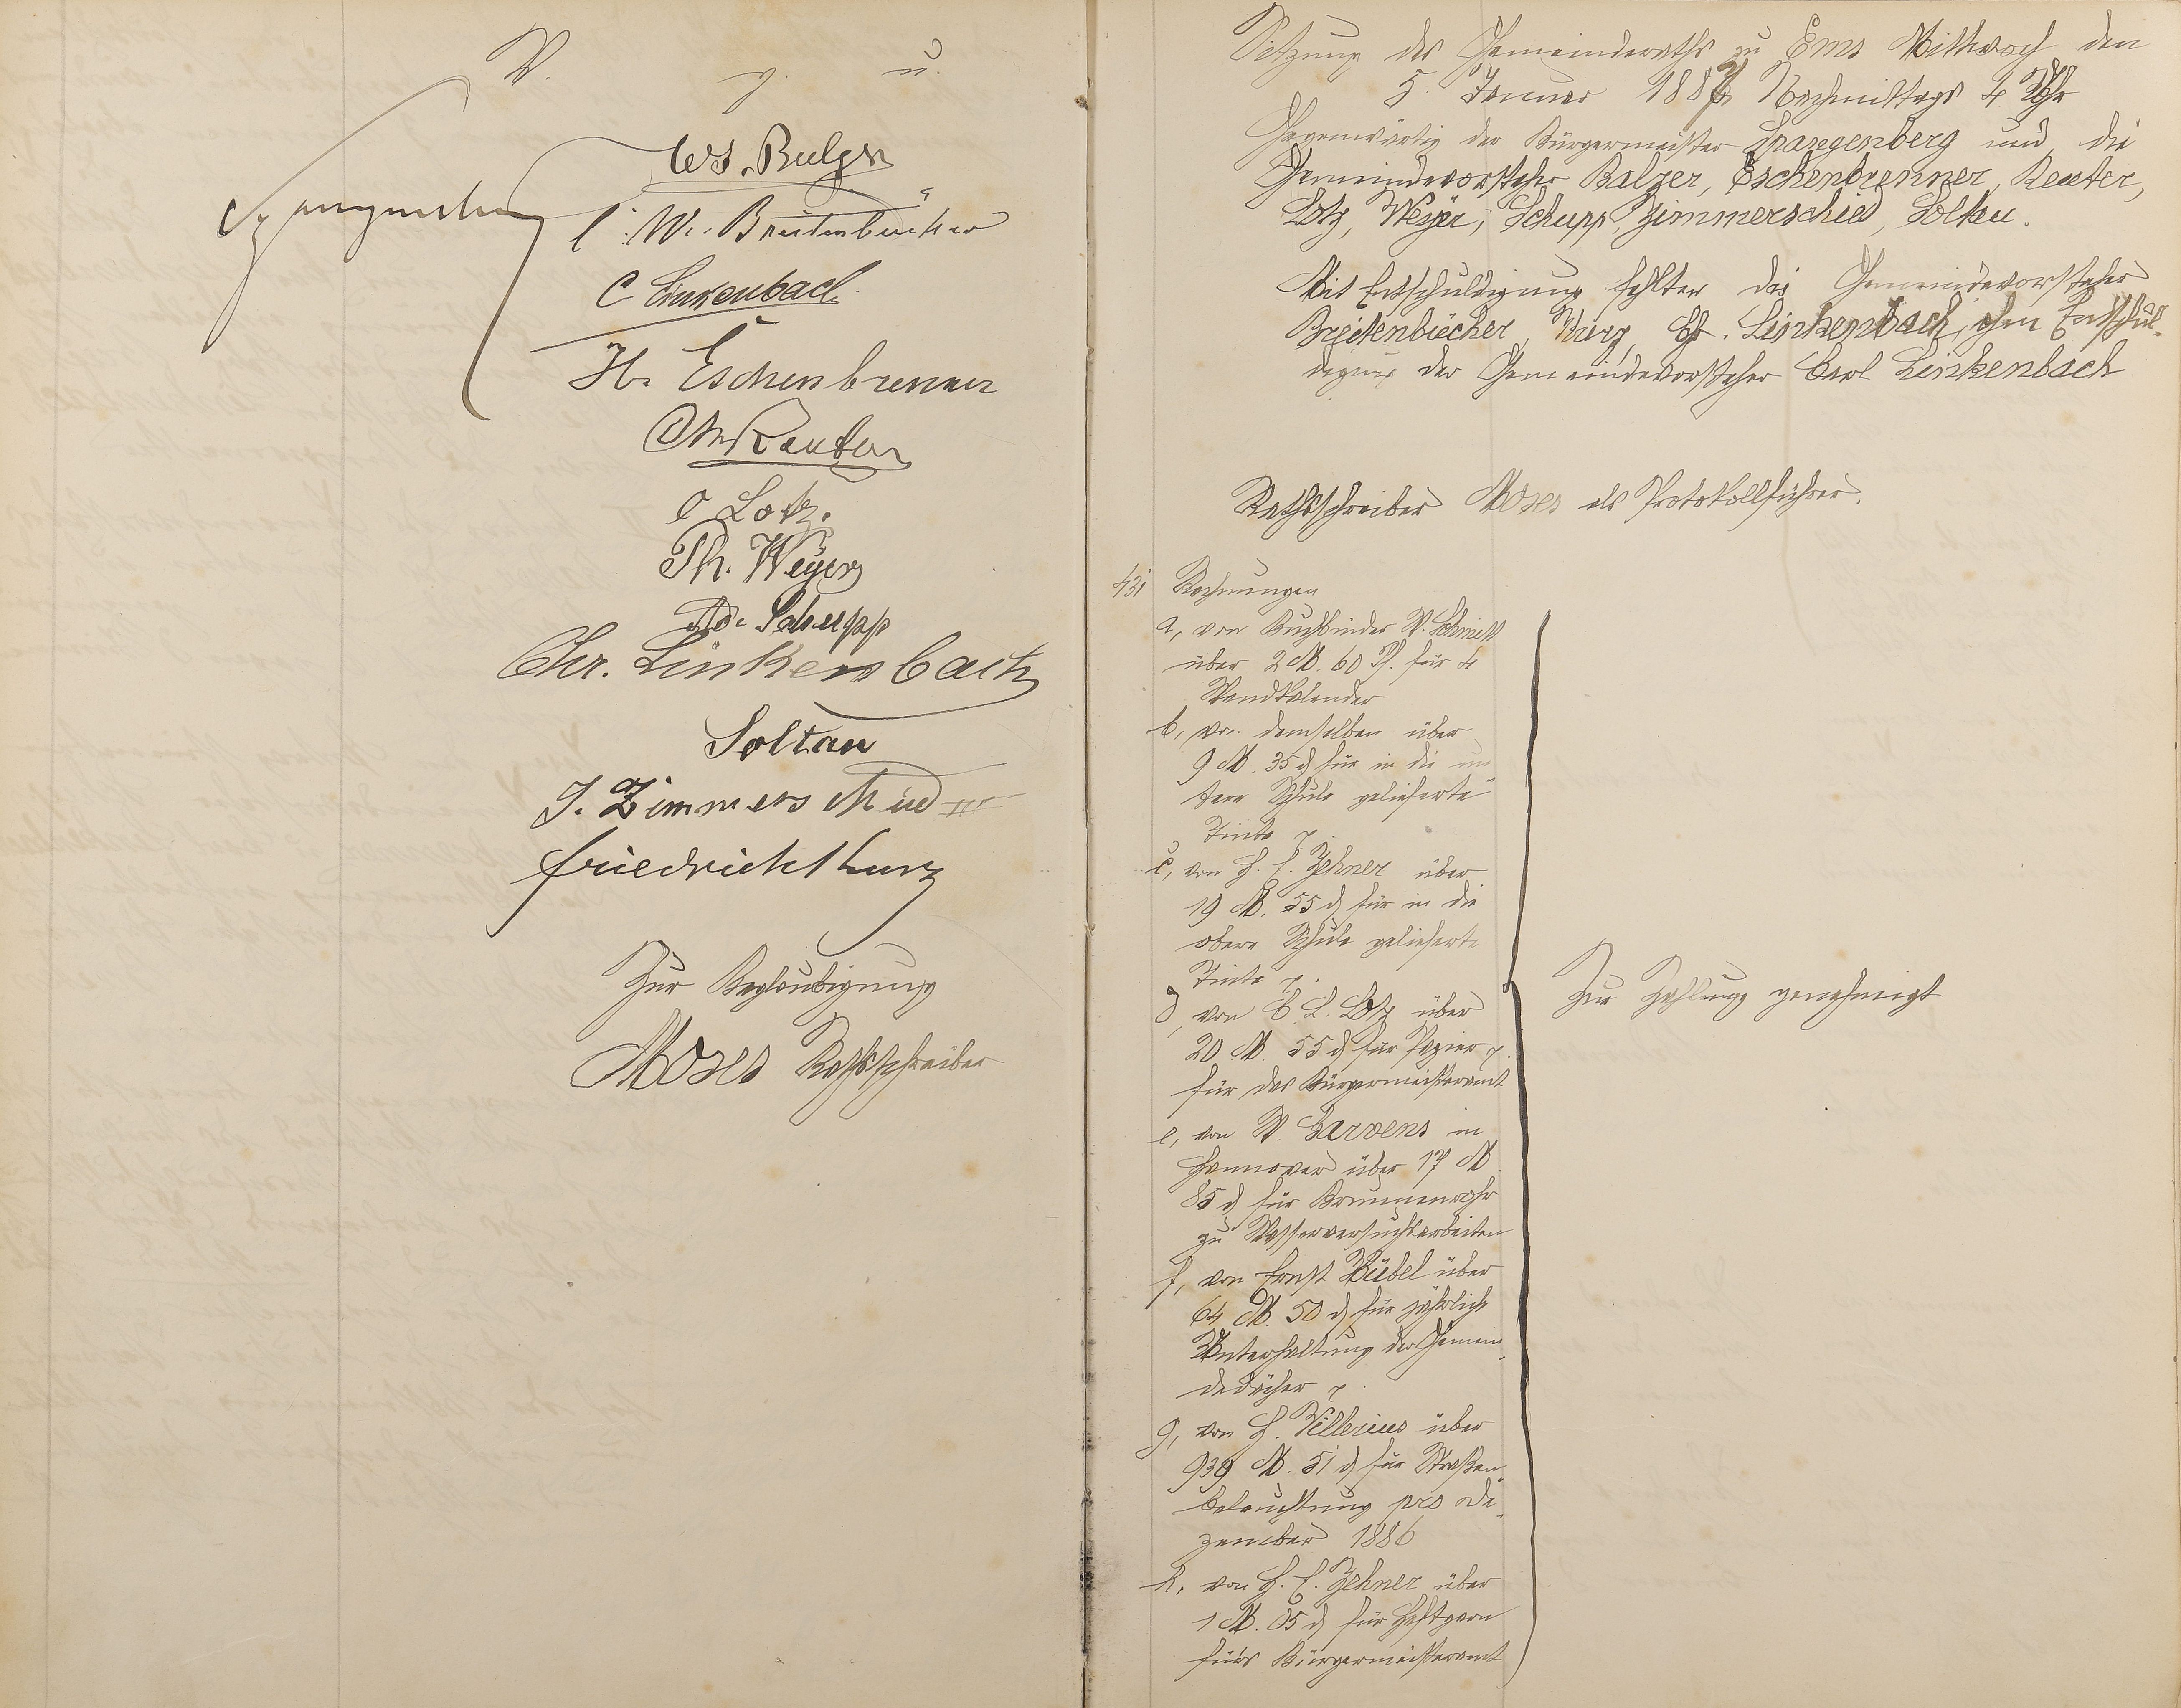 V. g. u.
Spangenberg
Ws. Balzer
W. Breitenbücher
C Linkenbach.
H. Eschenbrenner
Reuter
C Lotz.
Ph. Weyer
Ad. Schupp
Chr. Linkenbach
Soltau
J. Zimmerschied III
Friedrich Kurz
Zur Beglaubigung
Moses Rathsschreiber
Sitzung des Gemeinderaths zu Ems Mittwoch den
5. Januar 1887 Nachmittags 4 Uhr
Gegenwärtig der Bürgermeister Spangenberg und die
Gemeindevorsteher Balzer, Eschenbrenner, Reuter,
Lotz, Weyer, Schupp, Zimmerschied, Soltau.
Mit Entschuldigung fehlten die Gemeindevorsteher
Breitenbücher, Kurz, Chr. Linkenbach, ohne Entschul-
digung der Gemeindevorsteher Carl Linkenbach
Rathsschreiber Moses als Protokollführer.
431 Rechnungen
a, von Buchbinder W. Schmidt
über 2 M. 60 Pf. für 4
Wandkalender
b, von demselben über
9 M. 35 ₰ für in die un
tere Schule gelieferte
Tinte p.
c, von H. E. Zehner über
19 M. 55 ₰ für in die
obere Schule gelieferte
Tinte p.
d, von C. L. Lotz über
20 M. 55 ₰ für Papier p.
für das Bürgermeisteramt
e, von W. Garvens in
Hannover über 17 M
85 ₰ für Brunnenrohr
zu Wasserversuchsarbeiten
f, von Ernst Bübel über
64 M. 50 ₰ für jährliche
Unterhaltung der Gemein-
dedächer p.
g, von H. Vellerius über
939 M. 51 ₰ für Straßen-
beleuchtung pro De-
zember 1886
h, von H. E. Zehner über
1 M. 05 ₰ für Heftgarn
fürs Bürgermeisteramt
Zur Zahlung genehmigt